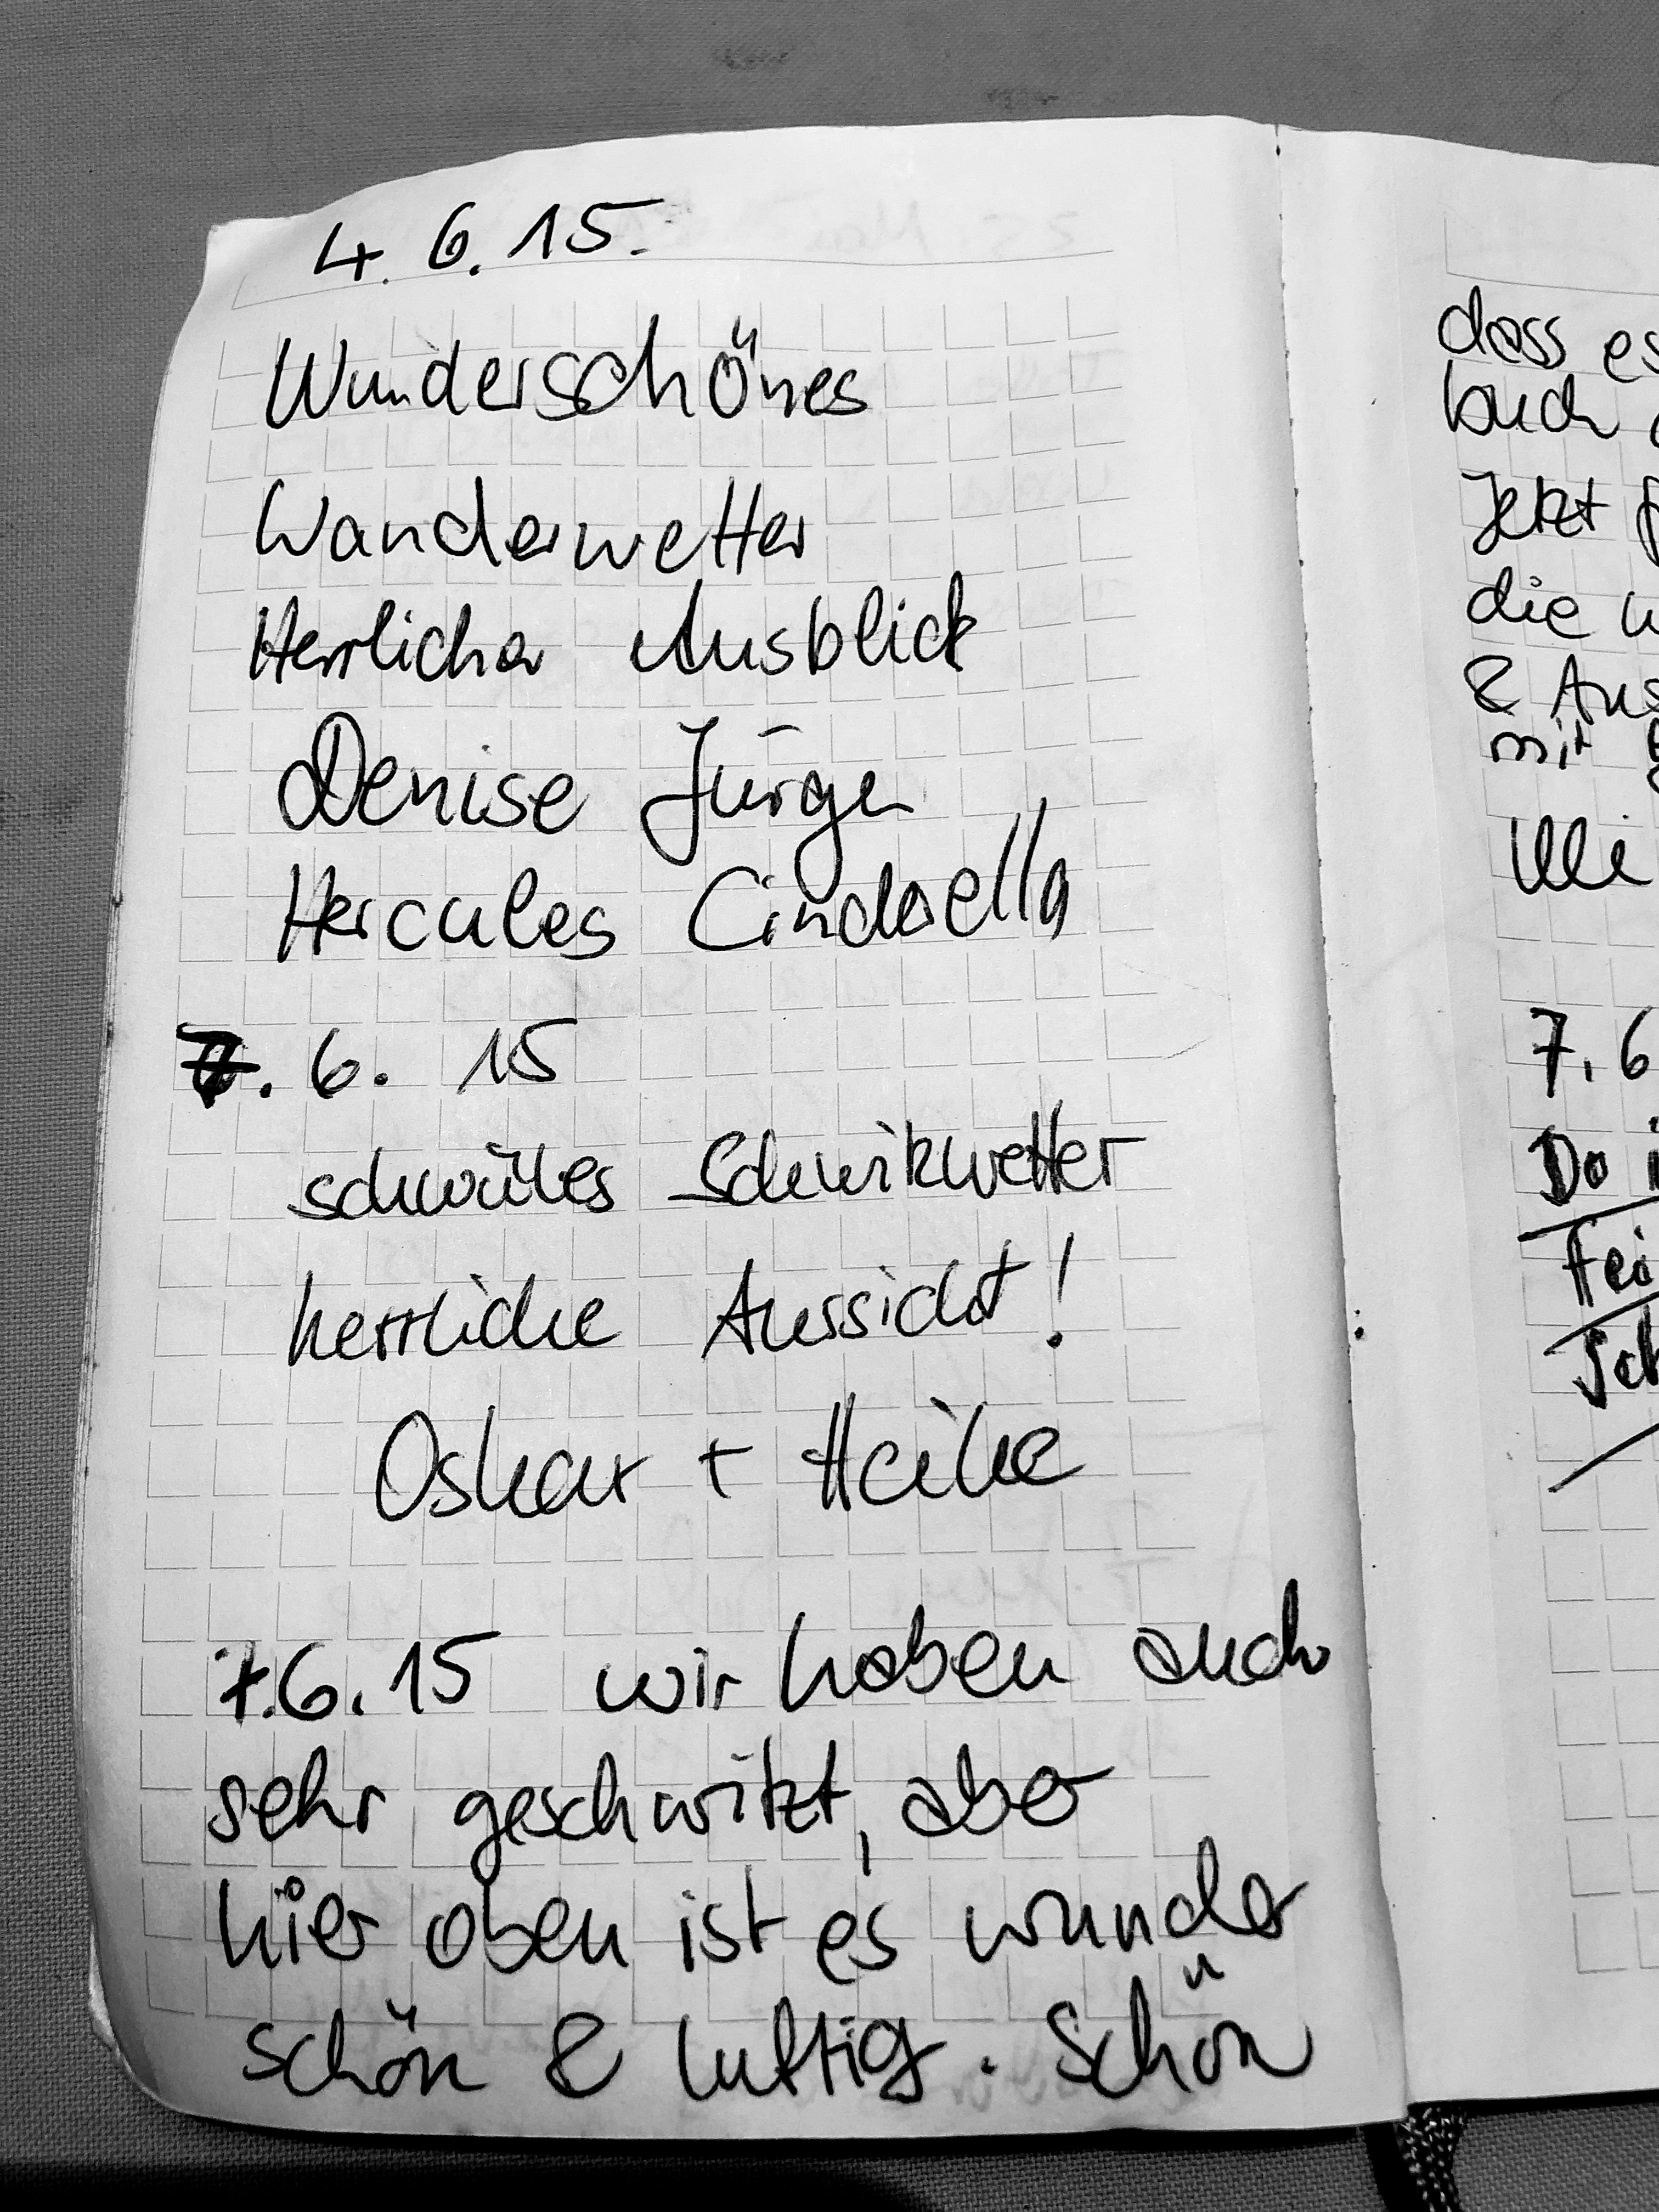 4.6.15.
Wunderschönes
Wanderwetter
Herrlicher Ausblick
Denise Jürgen
Hercules Cinderella
7.6.15
schwüles Schwitzwetter
herrliche Aussicht!
Oskar + Heike
7.6.15 wir haben auch
sehr geschwitzt, aber
hier oben ist es wunder
schön & luftig. Schön
dass es
buch
Jetzt
die
& Aus
mit
Uli
7.6
Do
Fei
Sch